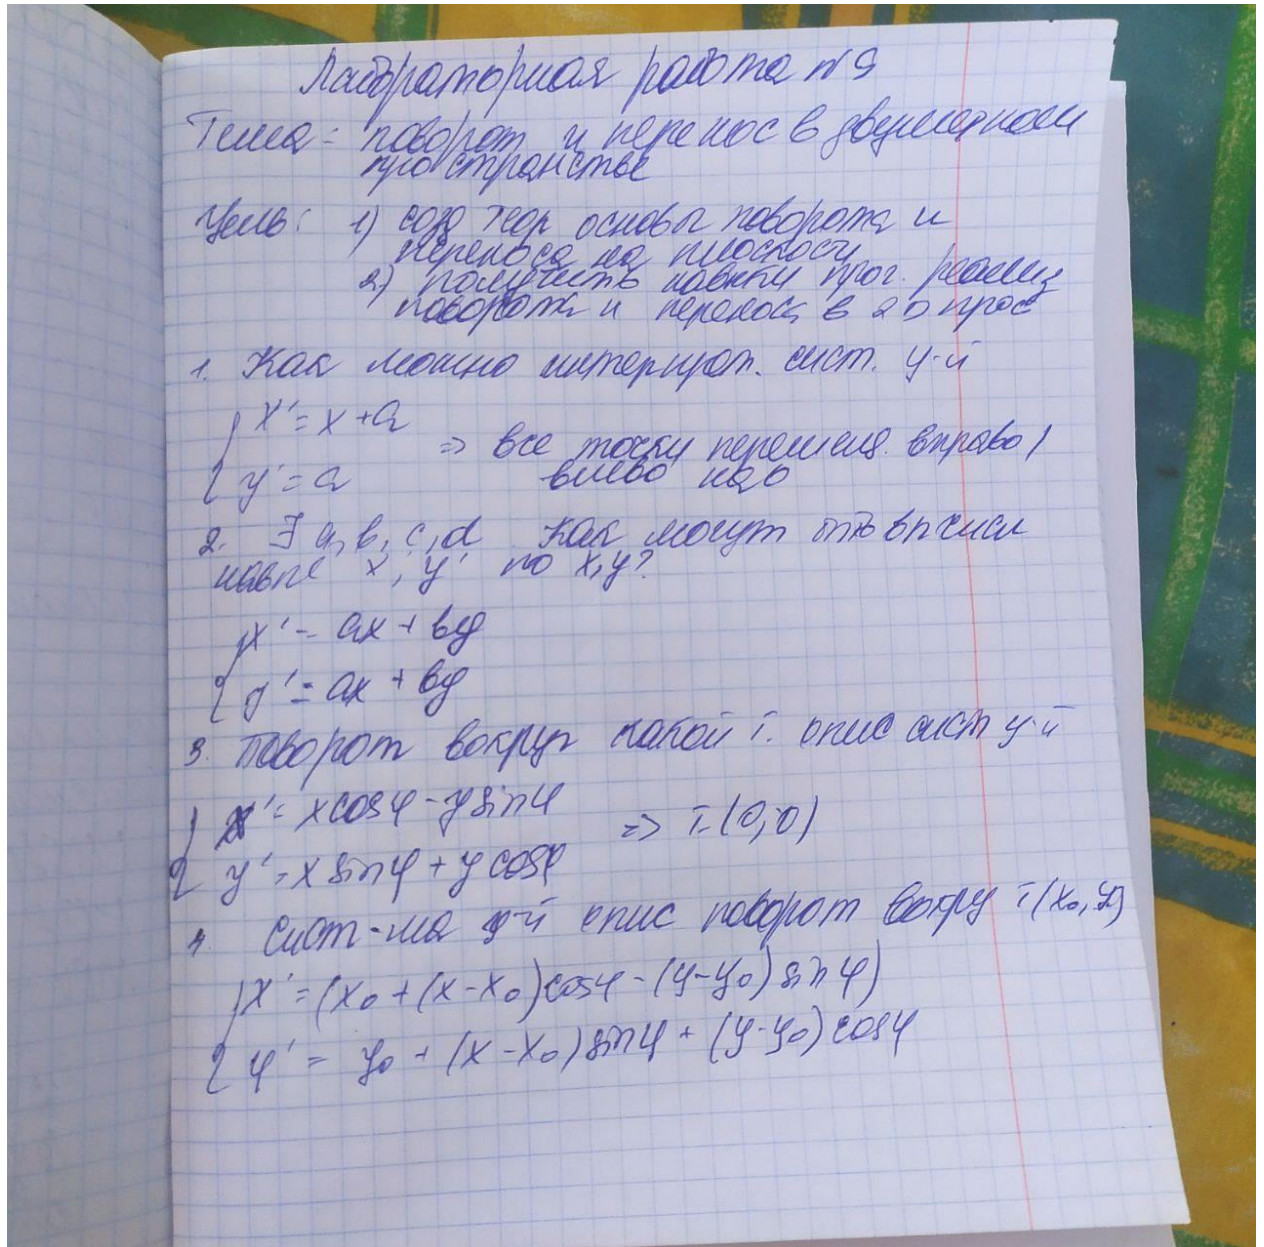 Лабораторная работа №9
Тема: поворот и перенос в двумерном
пространстве
Цель: 1) созд теор основы поворота и
переноса на плоскости
2) получить навыки прог. реализ
поворота и переноса в 2D прос
1. Как можно интерпрет. сист. у-й
x' = x + a
y' = a
=> все точки перемещ. вправо/
влево на
2. ∃ a, b, c, d Как могут быть
x, y' по x, y?
x' = ax + by
y' = ax + by
3. Поворот вокруг какой т. опис сист у-й
x' = x cosφ - y sinφ
y' = x sinφ + y cosφ
=> т. (0,0)
4. Сист-ма у-й опис поворот вокру т (x₀, y₀)
x' = (x₀ + (x - x₀) cosφ - (y - y₀) sinφ)
y' = y₀ + (x - x₀) sinφ + (y - y₀) cosφ